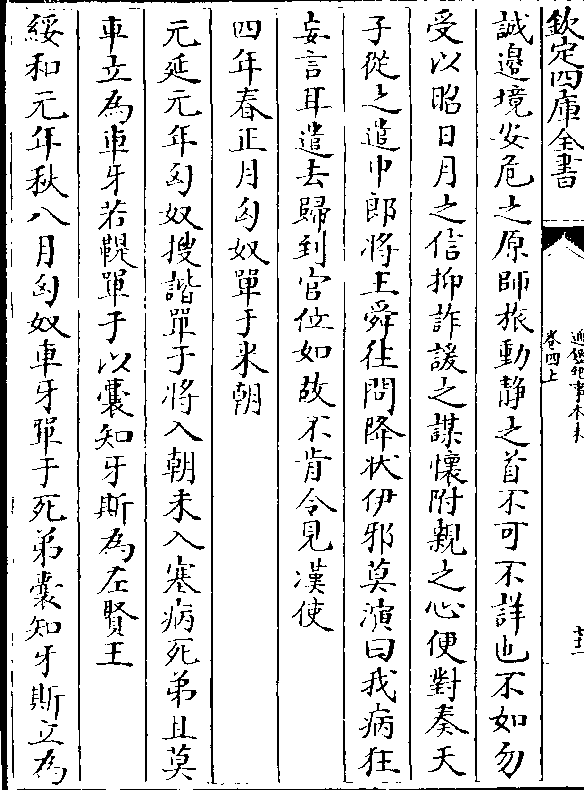 欽定四庫全書
通鑑紀事本末
卷四上
誠邊境安危之原師旅動静之首不可不詳也不如勿
受以昭日月之信抑詐諼之謀懷附親之心便對奏天
子從之遣中郎將王舜往問降状伊邪莫演曰我病狂
妄言耳遣去歸到官位如故不肯令見漢使
四年春正月匈奴單于來朝
元延元年匈奴搜諧單于將入朝未入塞病死弟且莫
車立為車牙若鞮單于以囊知牙斯為左賢王
綏和元年秋八月匈奴車牙單于死弟囊知牙斯立為